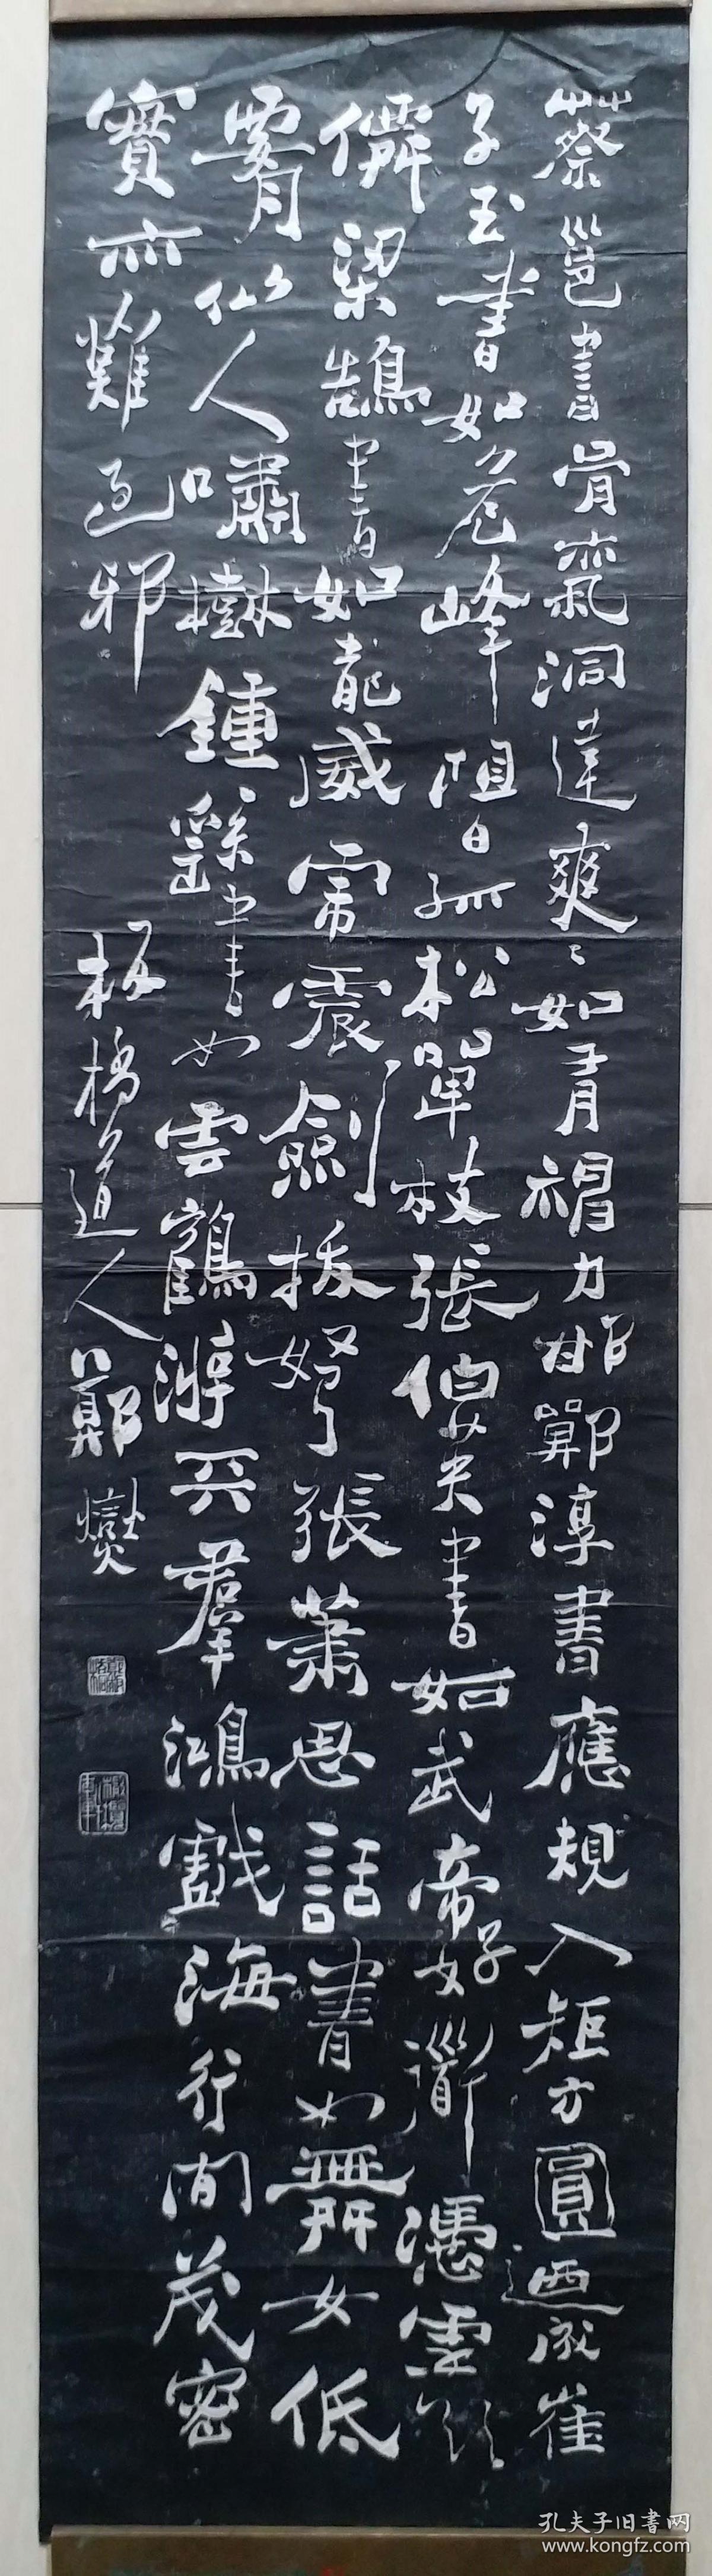 蔡邕書骨氣洞達爽〻如有神力邯鄲淳書應規入矩方圓迺成崔
子玉書如危峰阻日孤松單枝張伯英書如武帝好衜憑虛欲
僊梁鵠書如龍威虎震劍拔弩張蕭思話書如舞女低
腰仙人嘯樹鍾繇書如雲鶴游天羣鴻戲海行間茂密
實亦難過邪
板橋道人鄭燮
孔夫子旧书网
www.kongfz.com